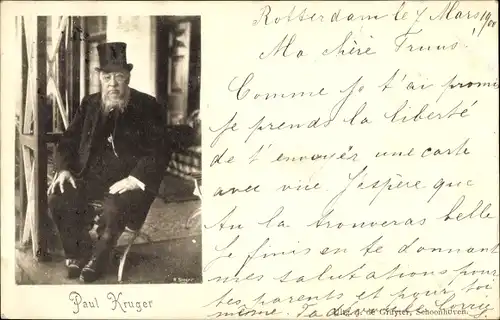 Rotterdam le 7 Mars 1901
Ma chère Truus!
Comme je t'ai promis
je prends la liberté
de t'envoyer une carte
avec vue. J'espère que
tu la trouveras belle
Je finis en te donnant
mes salutations pour
tes parents et pour toi
même. Ta
Paul Kruger
de Gruyter, Schoonhoven.